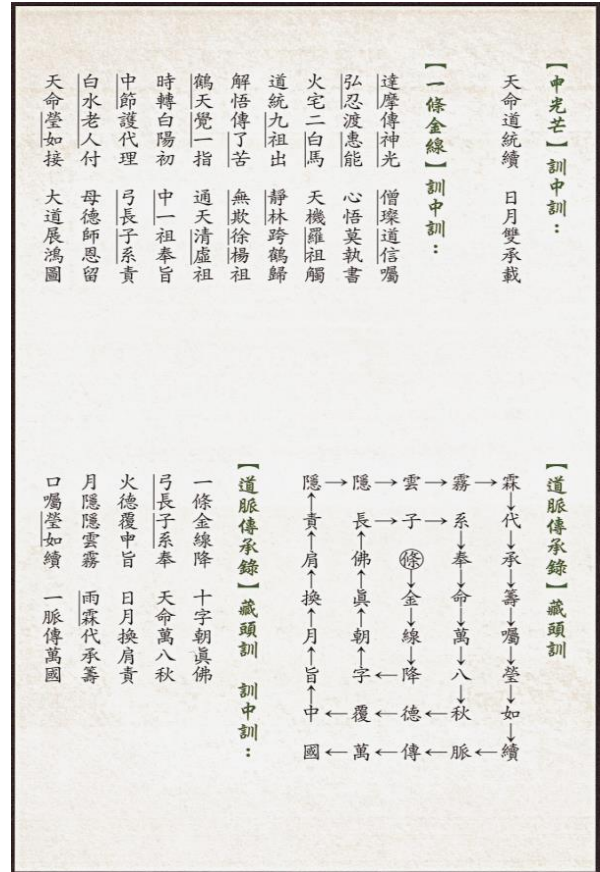 【中光芒】訓中訓：
天命道統續　日月雙承載
【一條金線】訓中訓：
達摩傳神光　僧璨道信囑
弘忍渡惠能　心悟莫執書
火宅二白馬　天機羅祖觸
道統九祖出　靜林跨鶴歸
解悟傳了苦　無欺徐楊祖
鶴天覺一指　通天清虛祖
時轉白陽初　中一祖奉旨
中節護代理　弓長子系責
白水老人付　母德師恩留
天命瑩如接　大道展鴻圖
【道脈傳承錄】藏頭訓
霖↓代↓承↓籌↓囑↓瑩↓如↓續
霧 系↓奉↓命↓萬↓八↓秋 脈
雲 子 條↓金↓線↓降 德 傳
隱 長↑佛↑眞↑朝↑字 覆 萬
隱↑責↑肩↑換↑月↑旨↑中 國
【道脈傳承錄】藏頭訓　訓中訓：
一條金線降　十字朝眞佛
弓長子系奉　天命萬八秋
火德覆中旨　日月換肩責
月隱隱雲霧　雨霖代承籌
口囑瑩如續　一脈傳萬國